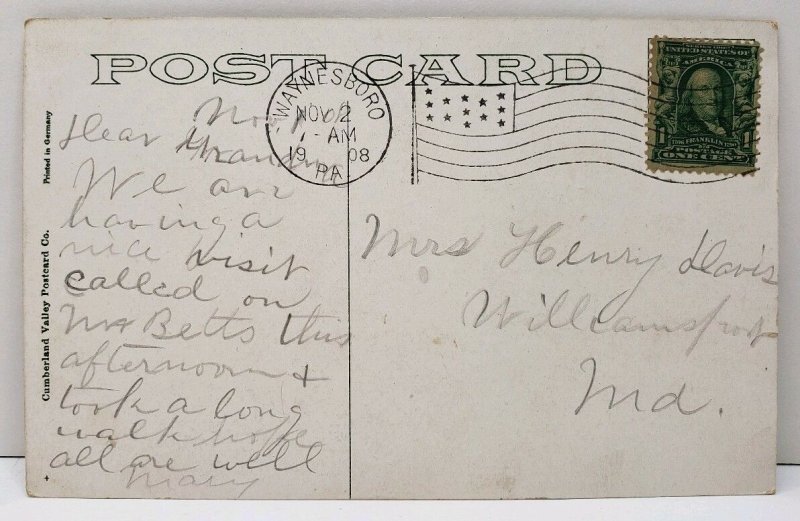 POST CARD
WAYNESBORO
NOV 2
7-AM
1908
PA.
SERIES 1902
UNITED STATES OF
AMERICA
1706 FRANKLIN 1790
POSTAGE
1 1
ONE CENT
Printed in Germany
Cumberland Valley Postcard Co.
Nov
Dear Grandma
We are
having a
nice visit
called on
Mrs Betts this
afternoon &
took a long
walk hope
all are well
Mary
Mrs Henry Davis
Williamsport
Md.